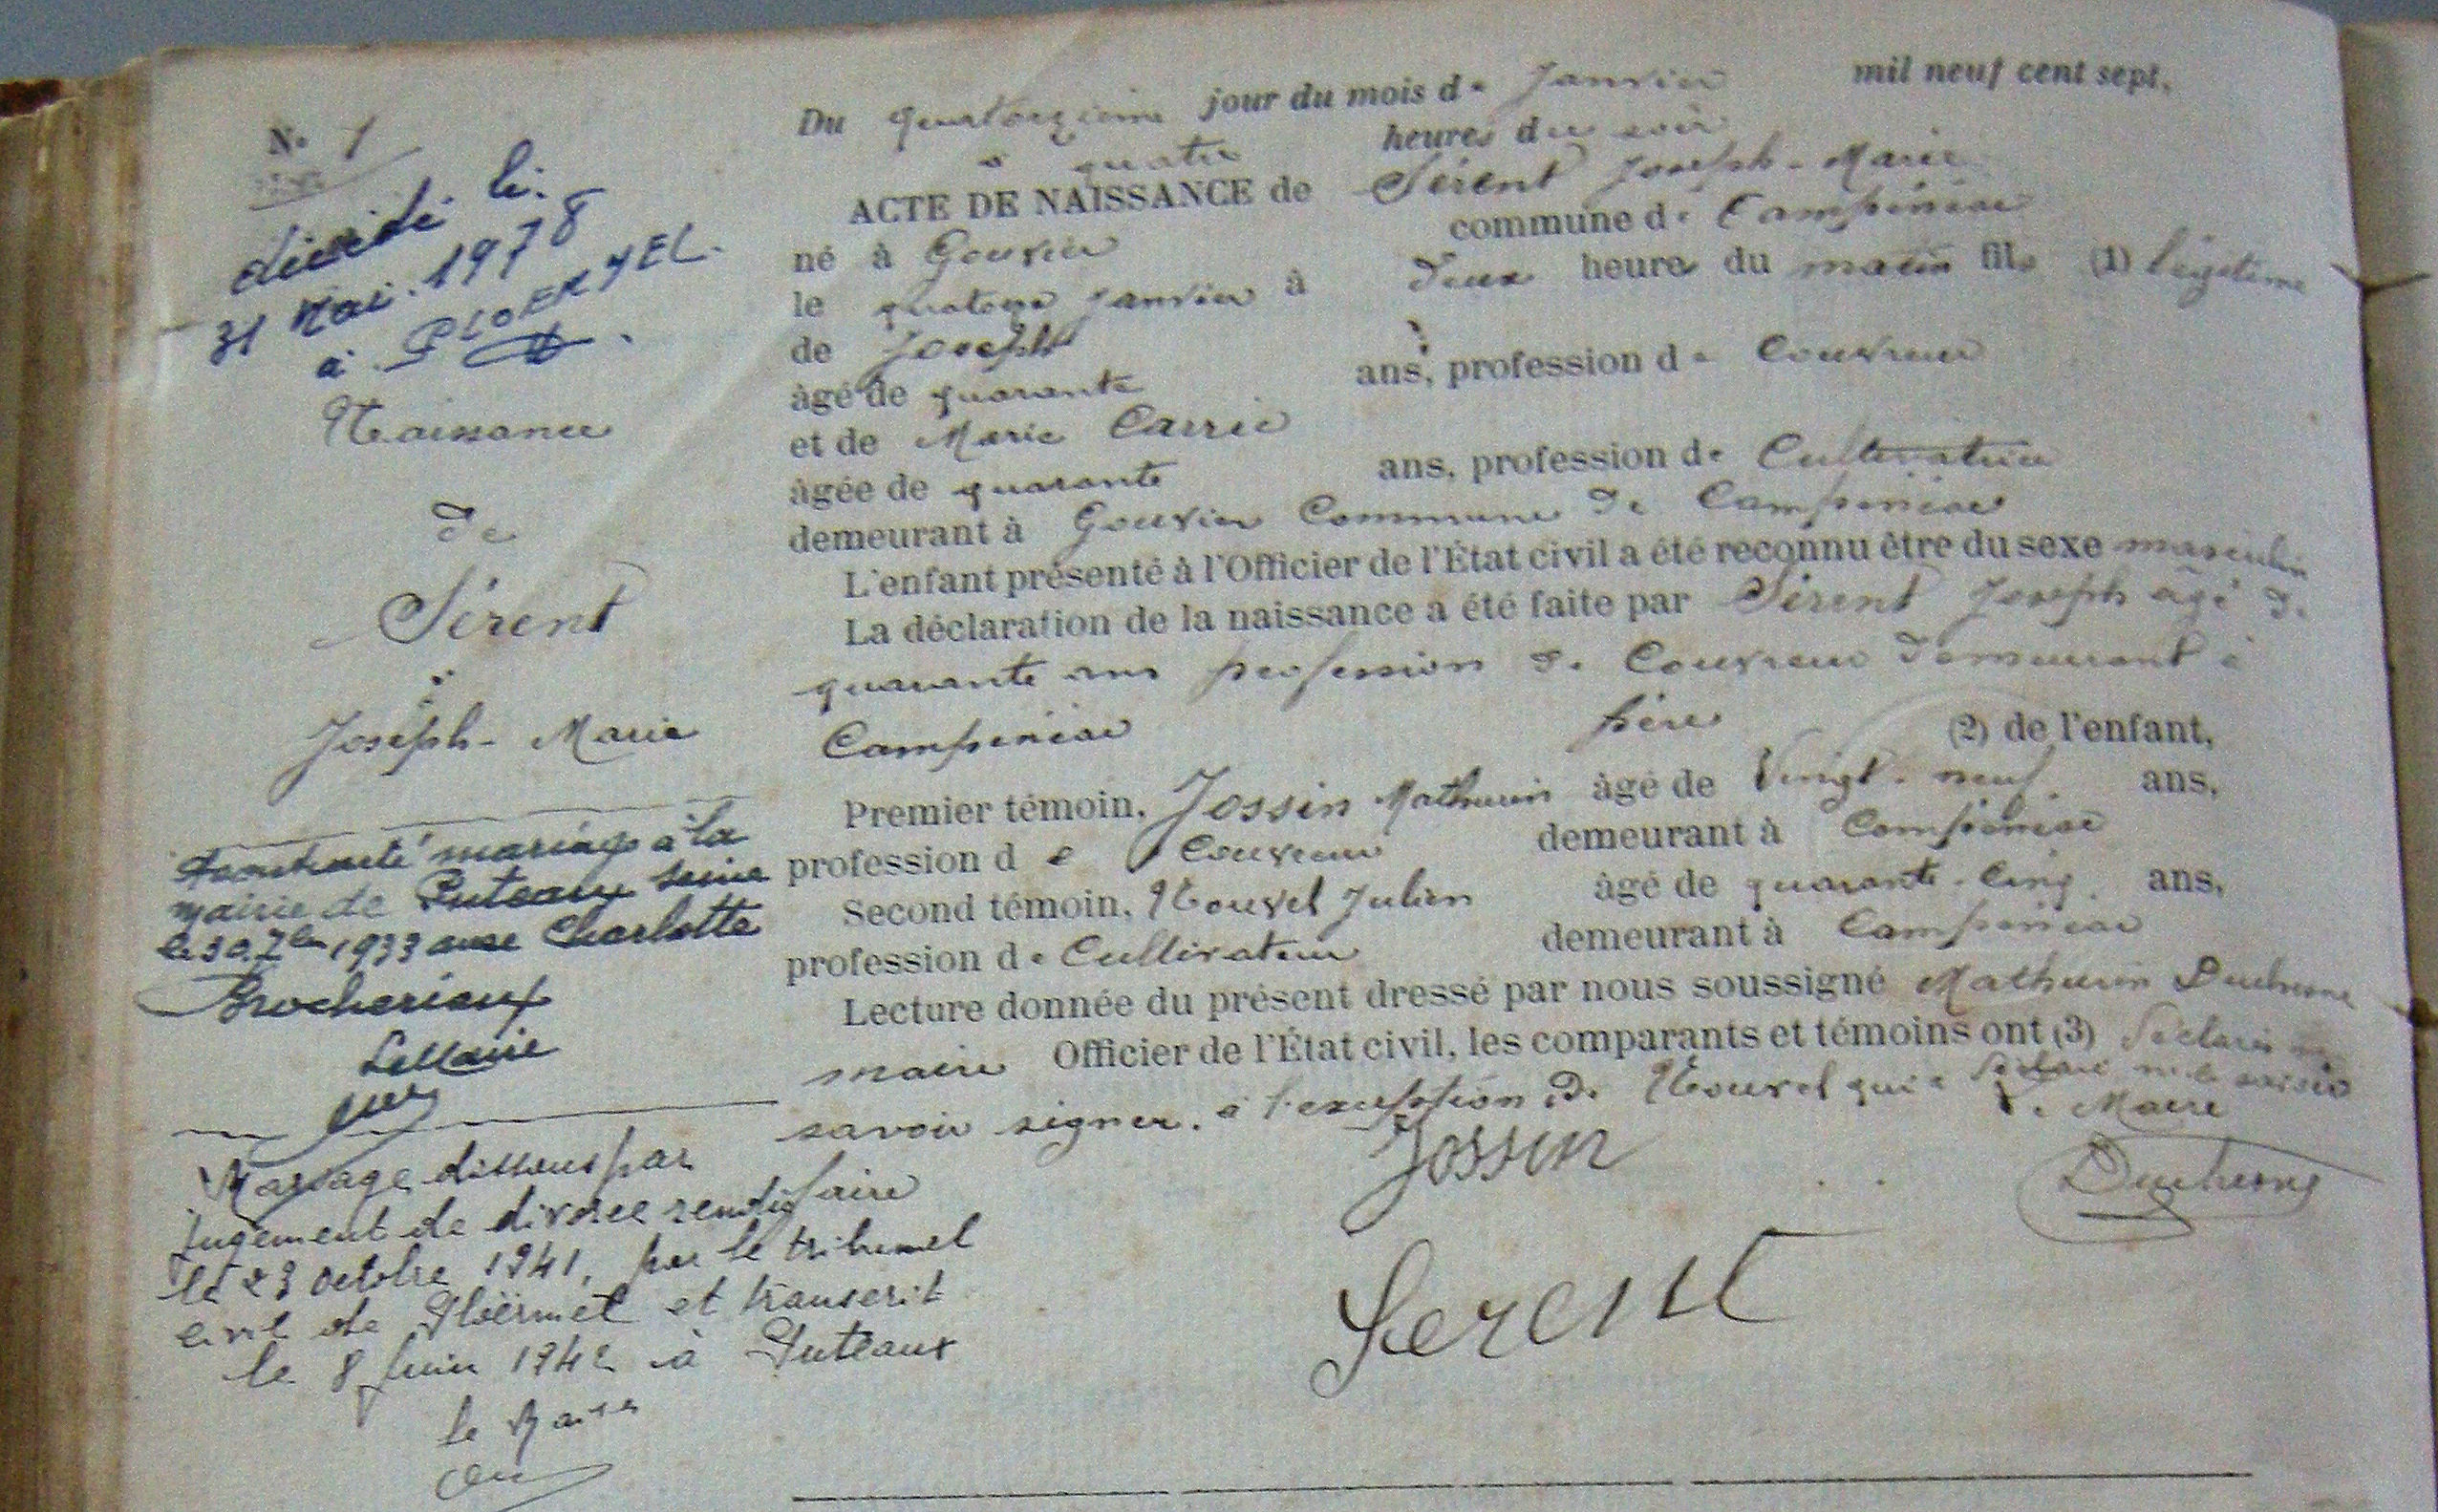 N° 1
décédé le
31 Mai 1978
à PLOERMEL.
Naissance
de
Sérent
Joseph-Marie
Contracté mariage à la
mairie de Puteaux Seine
le 30 7bre 1933 avec Charlotte
Brocherioux
Le Maire
Mariage dissous par
jugement de divorce rendu
le 23 octobre 1941, par le tribunal
civil de Ploërmel et transcrit
le 8 Juin 1942 à Puteaux
le Maire
Du quatorzième jour du mois de Janvier mil neuf cent sept,
à quatre heures du soir
ACTE DE NAISSANCE de Sérent Joseph-Marie
né à Gouvier commune de Campénéac
le quatorze Janvier à deux heures du matin fils (1) légitime
de Joseph
âgé de quarante ans, profession de Couvreur
et de Marie Carric
âgée de quarante ans, profession de Cultivatrice
demeurant à Gouvier Commune de Campénéac
L'enfant présenté à l'Officier de l'État civil a été reconnu être du sexe masculin
La déclaration de la naissance a été faite par Sérent Joseph âgé de
quarante ans profession de Couvreur demeurant à
Campénéac père (2) de l'enfant,
Premier témoin, Jossin Mathurin âgé de Vingt-neuf ans,
profession de Couvreur demeurant à Campénéac
Second témoin, Nouvel Julien âgé de quarante-cinq ans,
profession de Cultivateur demeurant à Campénéac
Lecture donnée du présent dressé par nous soussigné Mathurin Duchesne
maire Officier de l'État civil, les comparants et témoins ont (3) déclaré
savoir signer, à l'exception de Nouvel qui a déclaré ne le savoir
Le Maire
Jossin
Duchesne
Serent